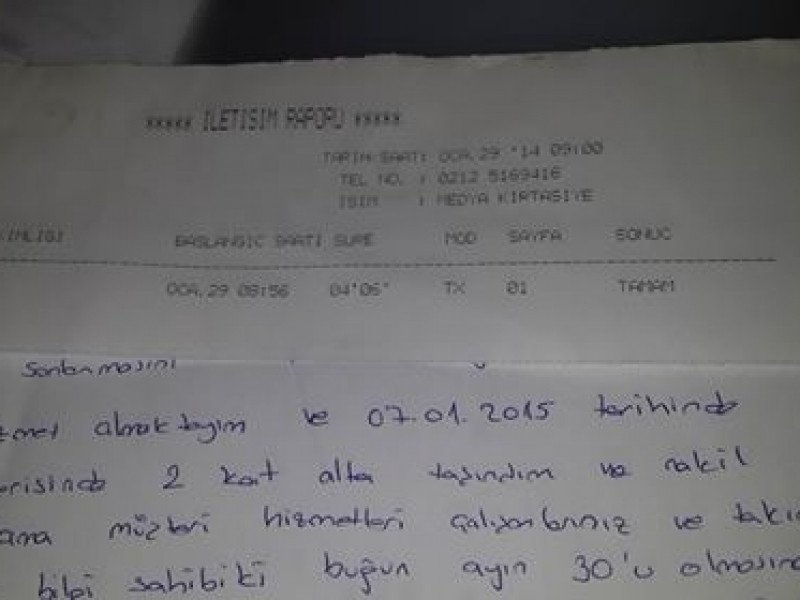 ***** ILETISIM RAPORU *****
TARIH/SAATI: OCA,29 '14 09:00
TEL NO. : 0212 5169416
ISIM : MEDYA KIRTASIYE
KIMLIGI BASLANGIC SAATI SURE MOD SAYFA SONUC
OCA,29 08:56 04'06" TX 01 TAMAM
sonlanmasını
almaktayım ve 07.01.2015 tarihinde
2 kat alta taşındım ve nakil
müşteri hizmetleri çalışanlarınız ve
bilgi sahibiki bugün ayın 30'u